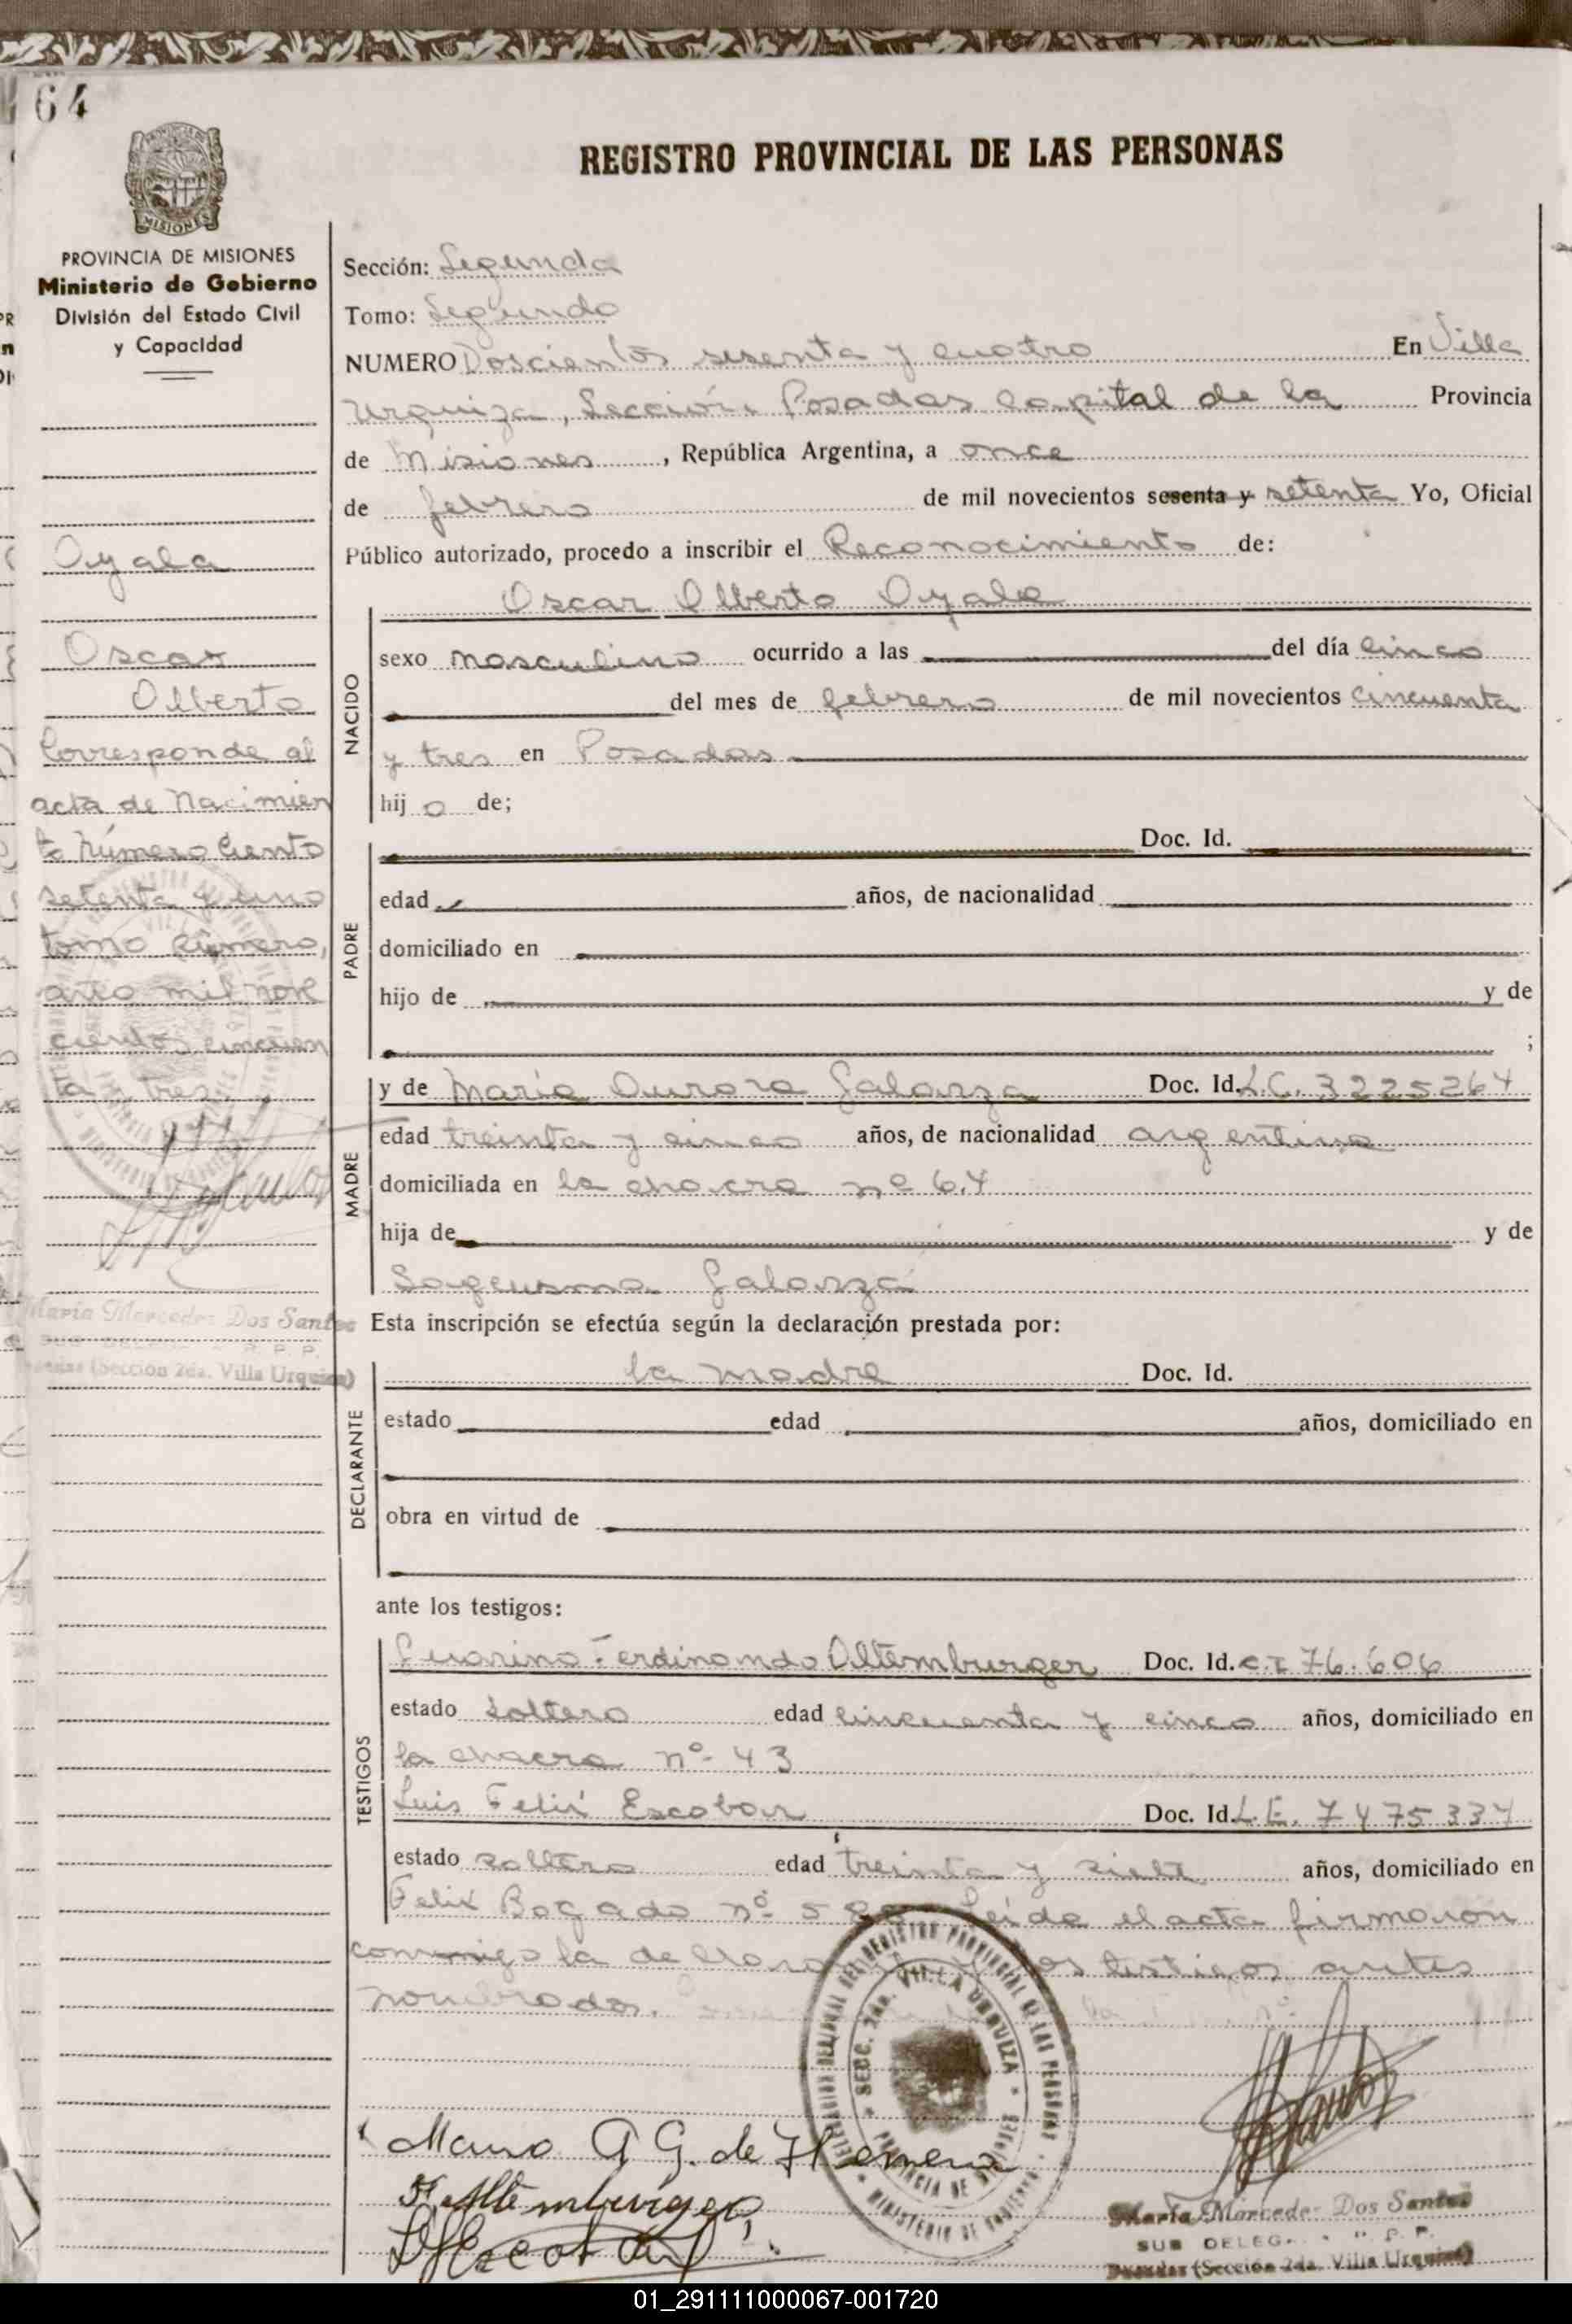 64
REGISTRO PROVINCIAL DE LAS PERSONAS
MISIONES
PROVINCIA DE MISIONES
Ministerio de Gobierno
División del Estado Civil
y Capacidad
Ayala
Oscar
Alberto
Corresponde al
acta de Nacimien
to Número Ciento
setenta y uno
tomo primero,
año mil nove
cientos cincuen
ta y tres
Maria Mercedes Dos Santos
SUB DELEG. R. P. P.
Posadas (Sección 2da. Villa Urquiza)
Sección: Segunda
Tomo: Segundo
NUMERO Doscientos sesenta y cuatro En Villa
Urquiza, Sección Posadas capital de la Provincia
de Misiones, República Argentina, a once
de febrero de mil novecientos sesenta y setenta Yo, Oficial
Público autorizado, procedo a inscribir el Reconocimiento de:
NACIDO
Oscar Alberto Ayala
sexo masculino ocurrido a las del día cinco
del mes de febrero de mil novecientos cincuenta
y tres en Posadas
hijo de;
PADRE
Doc. Id.
edad años, de nacionalidad
domiciliado en
hijo de y de
;
MADRE
y de María Aurora Galarza Doc. Id. L.C. 3225264
edad treinta y cinco años, de nacionalidad argentina
domiciliada en la chacra nº 64
hija de y de
Galarza
Esta inscripción se efectúa según la declaración prestada por:
DECLARANTE
la madre Doc. Id.
estado edad años, domiciliado en
obra en virtud de
ante los testigos:
TESTIGOS
Ferdinando Altemburger Doc. Id. C.I 76.606
estado soltero edad cincuenta y cinco años, domiciliado en
la chacra nº 43
Luis Felix Escobar Doc. Id. L.E. 7475337
estado soltero edad treinta y siete años, domiciliado en
Felix Bogado nº Leída el acta firmaron
conmigo la los testigos antes
nombrados.
DELEGACION REGIONAL DEL REGISTRO PROVINCIAL DE LAS PERSONAS
SECC. 2da. VILLA URQUIZA
PROVINCIA DE MISIONES
MINISTERIO DE GOBIERNO
A G. de Herrera
F. Altemburger
L F Escobar
Maria Mercedes Dos Santos
SUB DELEG. R. P. P.
Posadas (Sección 2da. Villa Urquiza)
01_291111000067-001720